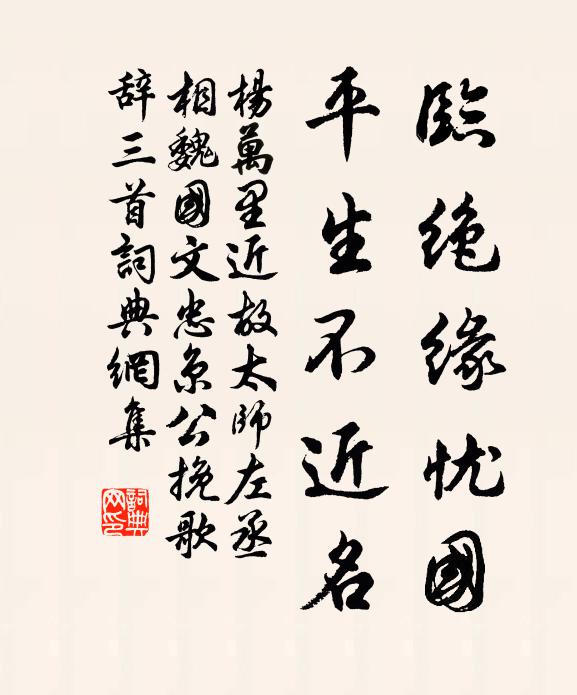 臨絕緣忧國
平生不近名
楊萬里近故太師左丞
相魏國文忠京公挽歌
辞三首詞典網集
詞典
网印